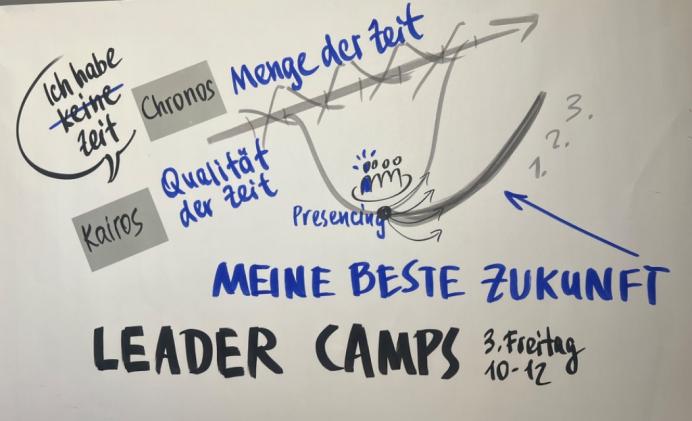 Ich habe
keine
zeit
Chronos
Menge der Zeit
Qualität
der Zeit
Kairos
Presencing
3.
2.
1.
MEINE BESTE ZUKUNFT
LEADER CAMPS
3. Freitag
10-12